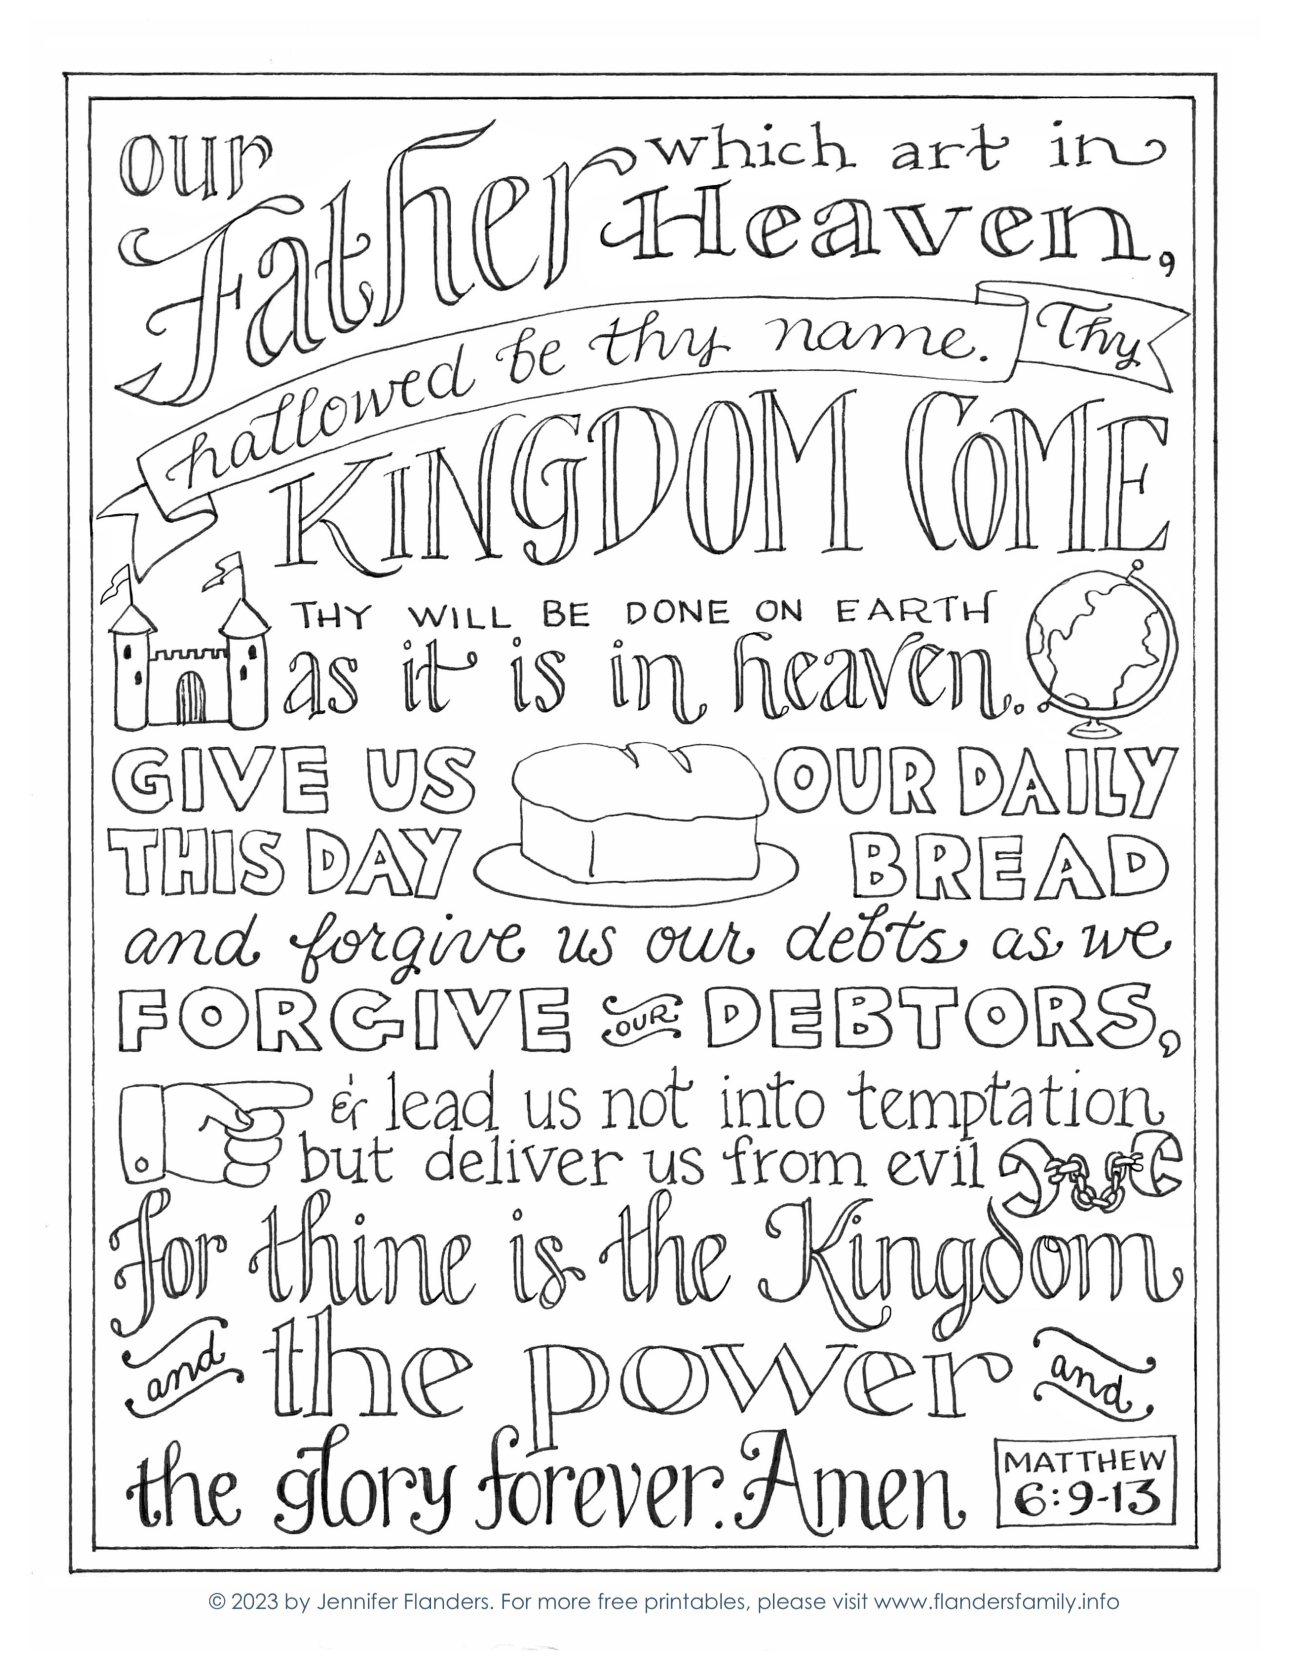 our Father which art in
Heaven,
hallowed be thy name. Thy
KINGDOM COME
THY WILL BE DONE ON EARTH
as it is in heaven.
GIVE US OUR DAILY
THIS DAY BREAD
and forgive us our debts as we
FORGIVE OUR DEBTORS,
& lead us not into temptation
but deliver us from evil
for thine is the Kingdom
and the power and
the glory forever. Amen
MATTHEW
6:9-13
© 2023 by Jennifer Flanders. For more free printables, please visit www.flandersfamily.info